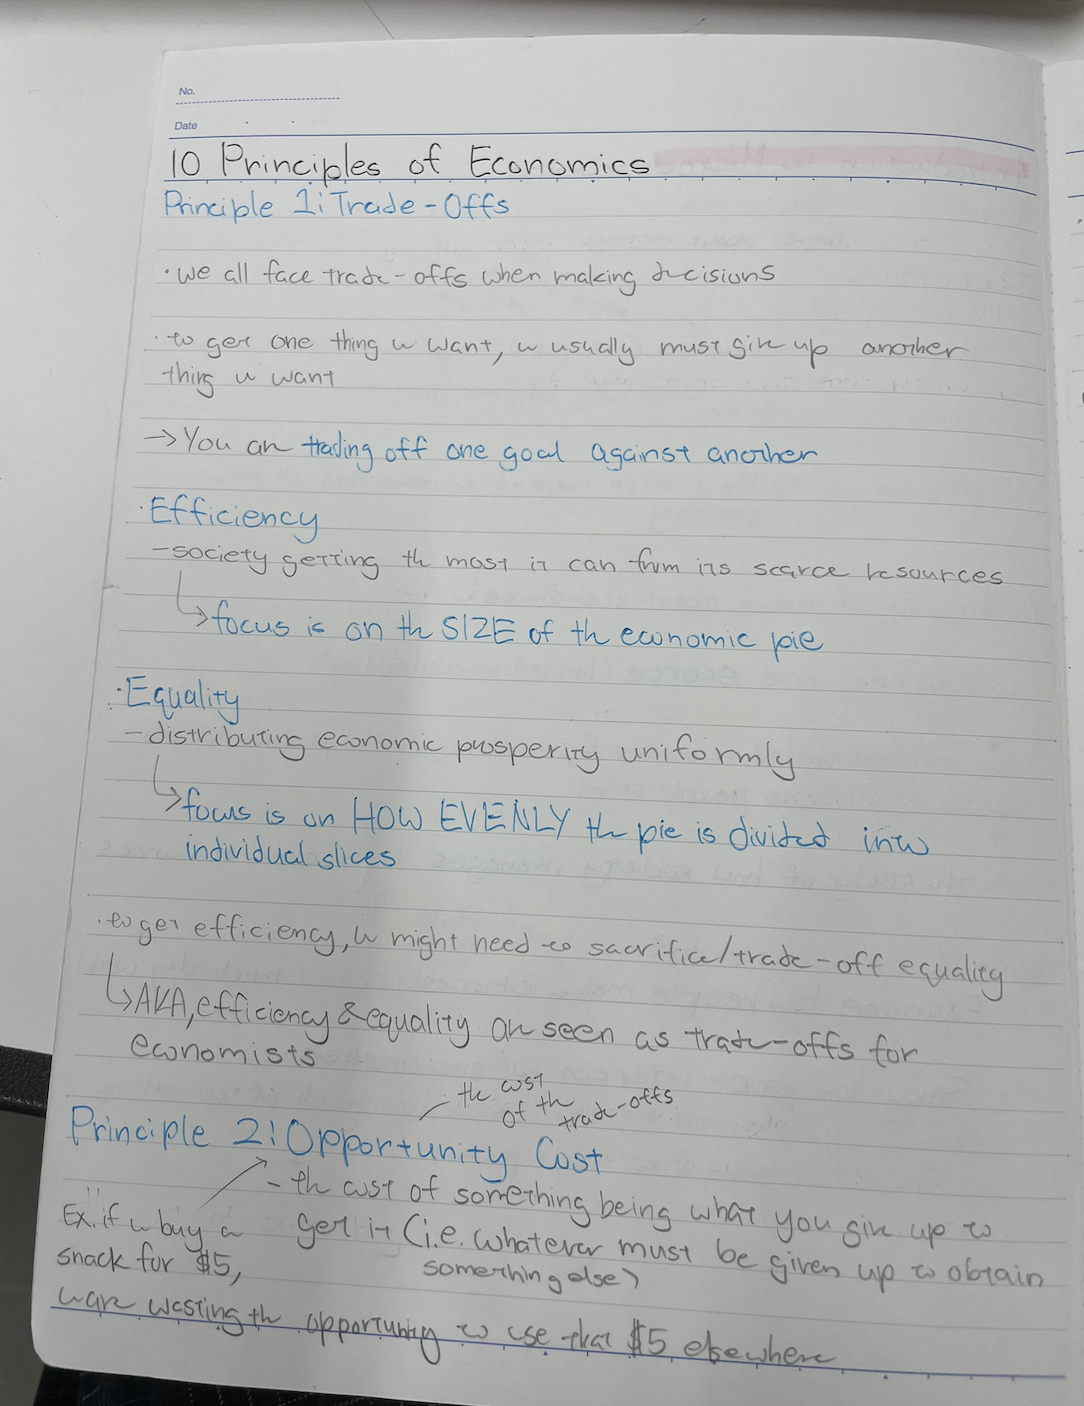 No.
Date
10 Principles of Economics
Principle 1: Trade-Offs
· we all face trade-offs when making decisions
· to get one thing u want, u usually must give up another
thing u want
→ You are trading off one goal against another
· Efficiency
- society getting the most it can from its scarce resources
↳ focus is on the SIZE of the economic pie
· Equality
- distributing economic prosperity uniformly
↳ focus is on HOW EVENLY the pie is divided into
individual slices
· to get efficiency, u might need to sacrifice/trade-off equality
↳ AKA, efficiency & equality are seen as trade-offs for
economists
the cost
of the
trade-offs
Principle 2: Opportunity Cost
- the cost of something being what you give up to
get it (i.e. whatever must be given up to obtain
something else)
Ex. if u buy a
snack for $5,
u are wasting the opportunity to use that $5 elsewhere